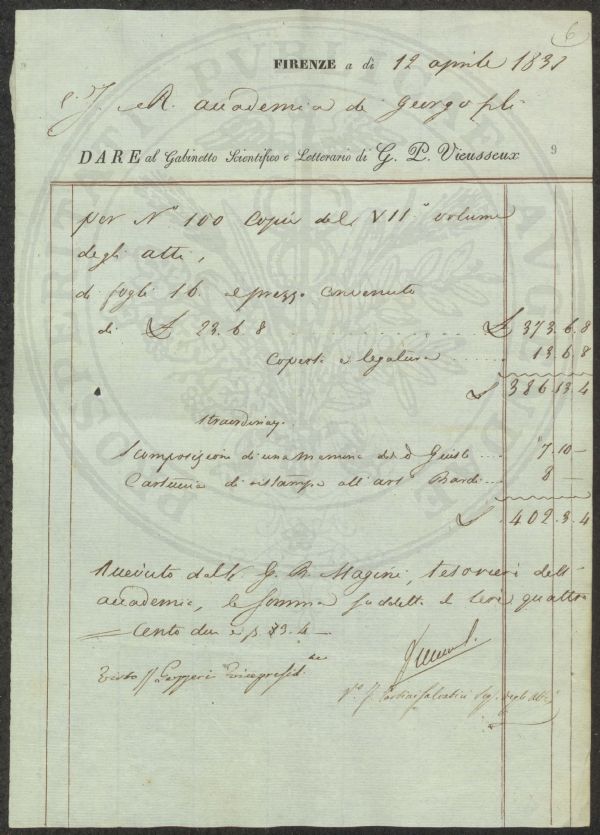 6
FIRENZE a dì 12 aprile 183
R. accademia di georgofili
DARE al Gabinetto Scientifico e Letterario di G. P. Vieusseux 9
per N° 100 Copie del VII° volume
degli atti,
di fogli 16. al prezzo convenuto
di £ 23. 6. 8 .......... £ 373. 6. 8
Coperta e legatura ...... 13. 6. 8
£ 386. 13. 4
straordinarj.
Scomposizione di una Memoria del D Giusti ... 7. 10 —
Cartuccia di ristampa all' art° Bardi ... 8 —
£ 402. 3. 4
Ricevuto dal G. B. Magini, tesoriere dell'
accademia, la somma suddetta di lire quattro
cento due e 3. 4 —
Visto Vicepresid.te
V° degli atti
PROSPERITATI PVBLICAE AVGENDAE